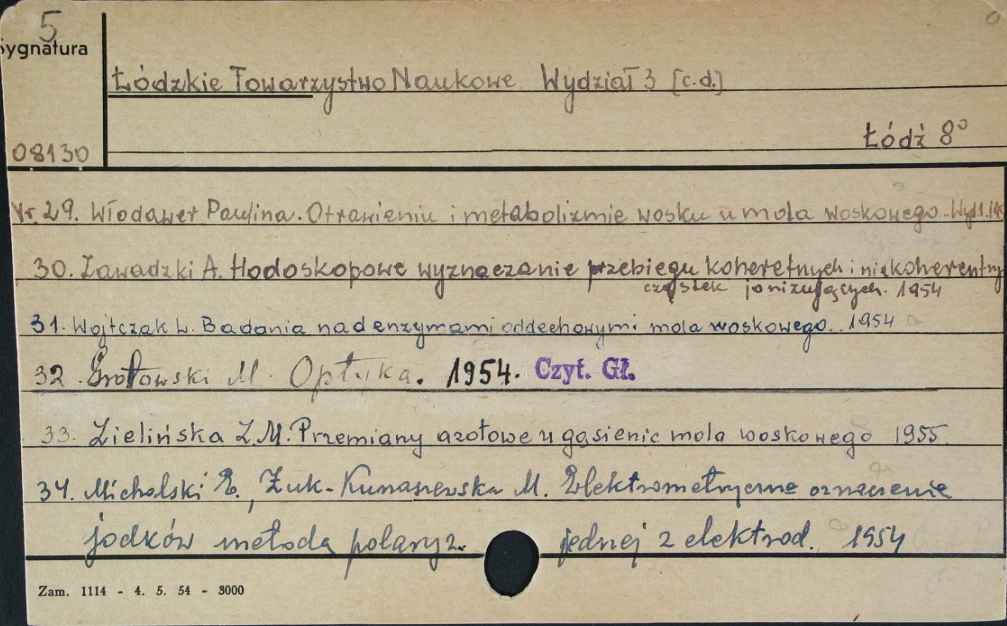 5
Sygnatura
Łódzkie Towarzystwo Naukowe Wydział 3 [c.d.]
Łódź 8°
08130
Nr. 29. Włodawer Paulina. O trawieniu i metabolizmie wosku u mola woskowego. Wyd.1.
30. Zawadzki A. Hodoskopowe wyznaczanie przebiegu koheretnych i niekoherentnych
cząstek jonizujących. 1954
31. Wojtczak L. Badania nad enzymami oddechowymi mola woskowego. 1954
32. Grotowski M. Optyka. 1954. Czyt. Gł.
33. Zielińska Z.M. Przemiany azotowe u gąsienic mola woskowego 1955.
34. Michalski E., Żuk-Kunaszewska M. Elektrometryczne oznaczenie
jodków metodą polaryz. jednej z elektrod. 1954
Zam. 1114 - 4. 5. 54 - 3000